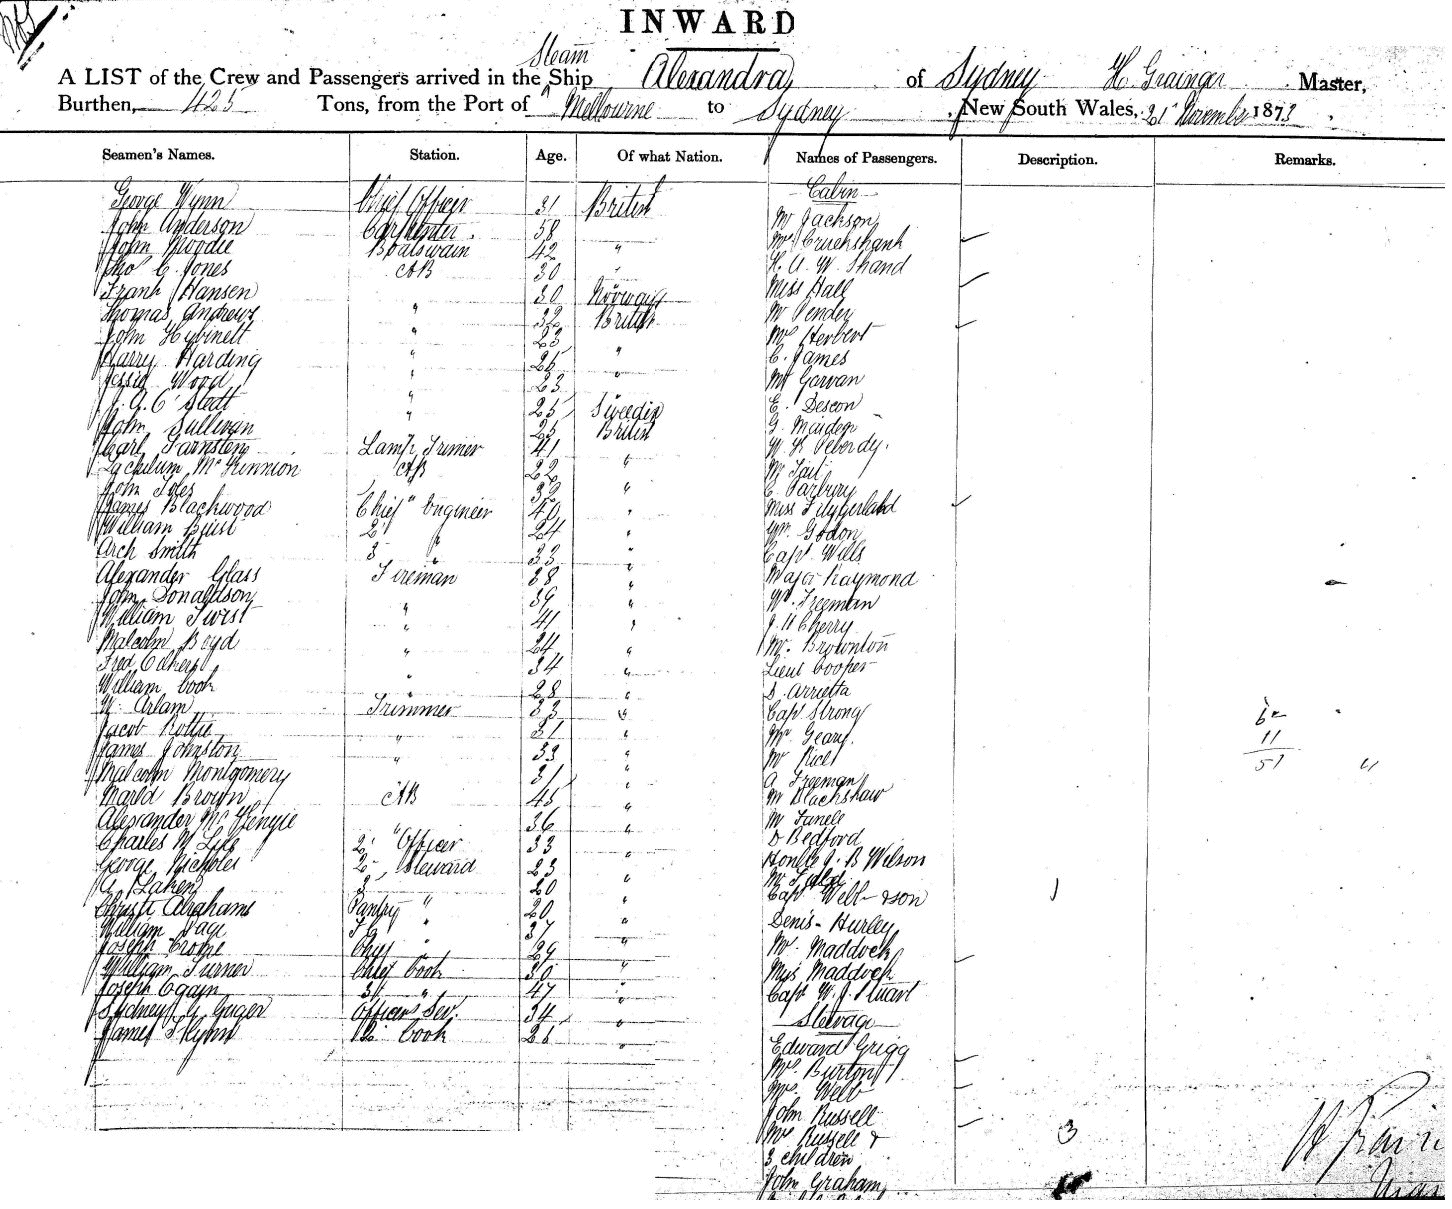 INWARD
Steam
A LIST of the Crew and Passengers arrived in the Ship Alexandra of Sydney H. Grainger Master,
Burthen, 425 Tons, from the Port of Melbourne to Sydney, New South Wales, 21 November 1873
Seamen's Names. Station. Age. Of what Nation. Names of Passengers. Description. Remarks.
Cabin
George Wynn Chief Officer 31 British Mr Jackson
John Anderson Carpenter 58 Mrs Cruckshank
John Moodie Boatswain 42 " H. A. W. Shand
Thos C. Jones AB 30 " Miss Hall
Frank Hansen " 30 Norway Mr Pender
Thomas Andrews " 32 British Mrs Herbert
John Hybinett " 23 C. James
Harry Harding " 25 " Mr Garvan
Jessie Wood " 23 " E. Descon
J. A. C. Stedt " 25 Sweedin G. Maiden
John Sullivan " 25 British W K Peberdy
Carl Farnsten Lamp Trimer 41 Mr Tait
Lachlum McKinnion AB 22 " C. Parbury
John Toles " 32 " Miss Fitzgerald
James Blackwood Chief Engineer 40 " Wm. Godon
William Buist 2 " 24 " Capt Wells
Arch Smith 3 " 33 " Major Raymond
Alexander Glass Fireman 38 " W. Freeman
John Donaldson " 39 " J. H Cherry
William Twist " 41 " Mr. Brownton
Malcolm Boyd " 24 " Lieut Cooper
Fred Eakers " 34 " D. Arrietta
William Cook " 28 " Capt Strong
W. Arlam Trimmer 33 " Mr Geary
Jacob Rottie " 31 " Mr Rich
James Johnston " 33 " A Freeman
Malcolm Montgomery 31 " Mr Blackshaw
Brown AB 45 "
Alexander McKenzie " 36 " D Bedford
Charles M Lyle 2 Officer 33 " Honble J. B Wilson
George Nicholes 2 Steward 23 " Mr
A. Laken 3 20 " Capt Webb & son
Christi Abrahams Pantry " 20 " Denis Hurley
William Page " 37 " Mr. Maddock
Joseph Crome " 29 " Mrs Maddock
William Turner Chief Cook 30 " Capt W. J. Stuart
Joseph Egain 3 " 47 " Steerage
Sydney G. Gager Officers Ser. 34 " Edward Grigg
James Flynn 2 Cook 25 " Mrs Burton
Mrs Webb
John Russell
Mrs Russell &
3 children 3
John Graham
11
51